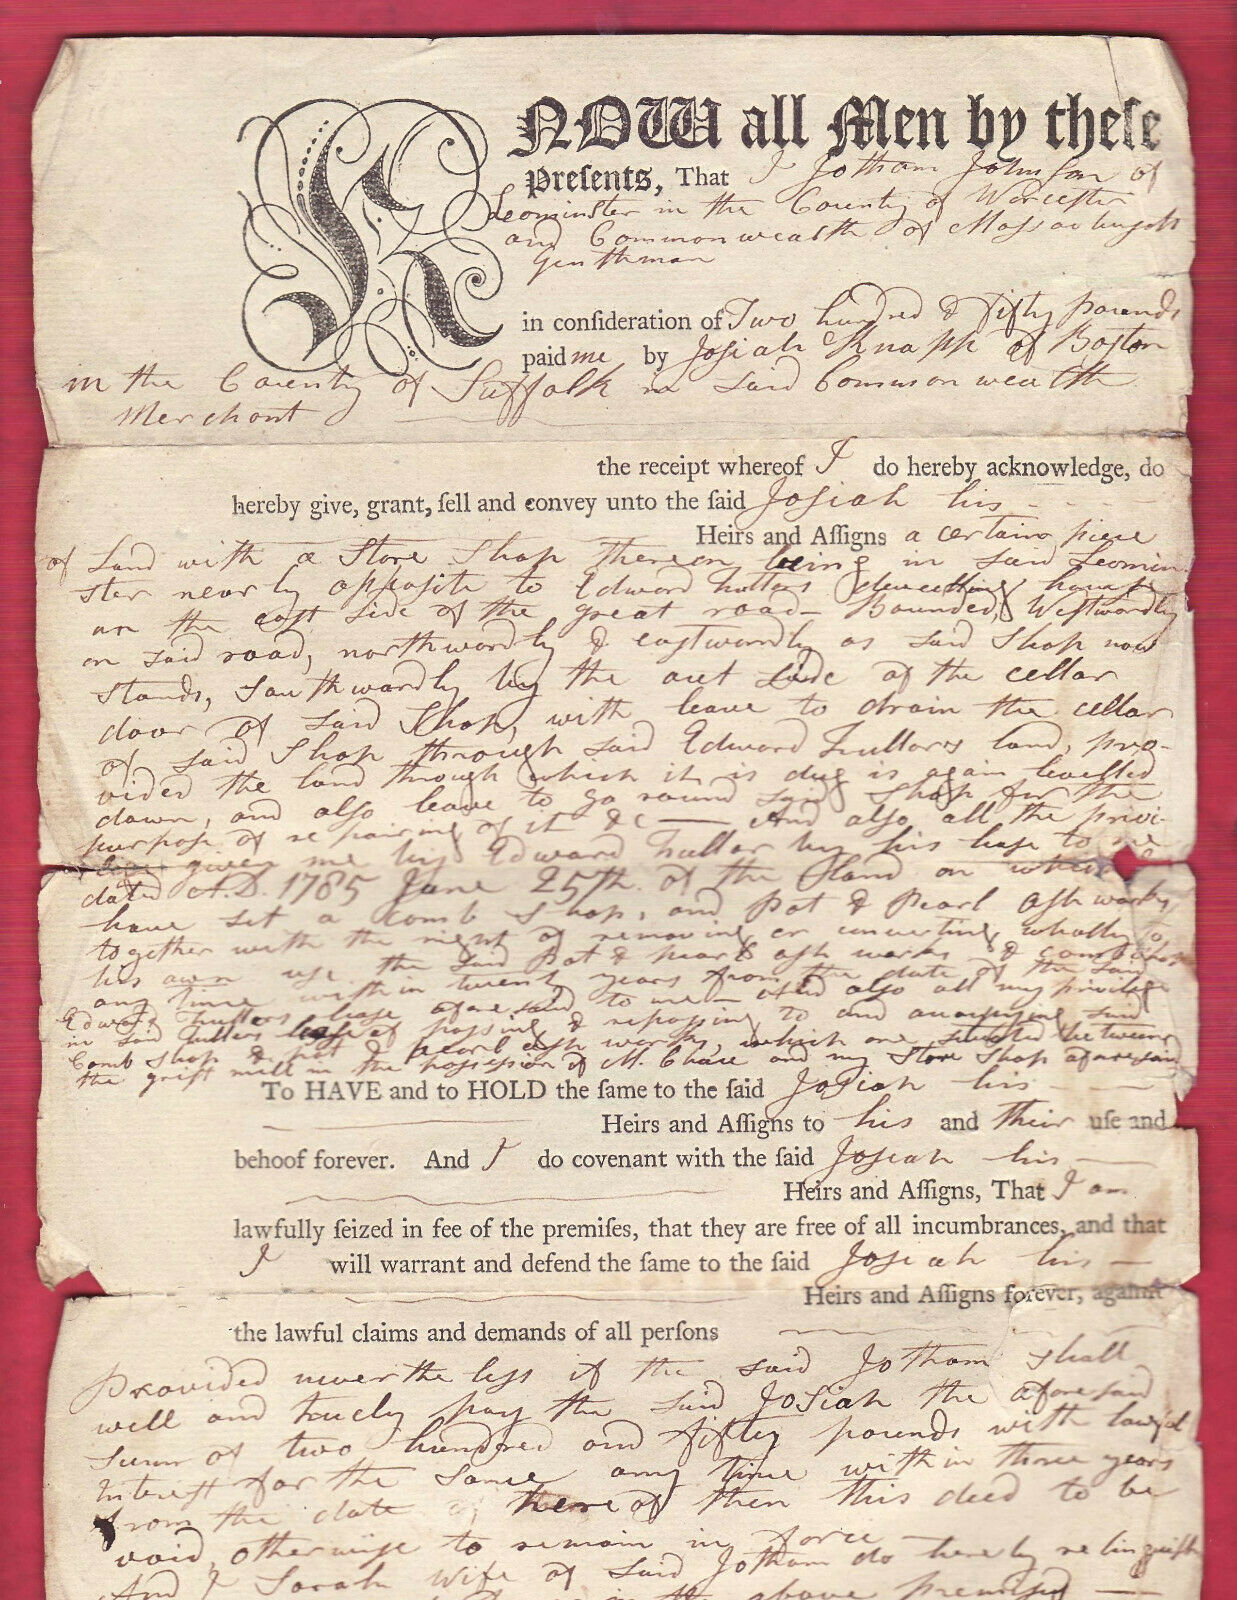 KNOW all Men by theſe
Preſents, That I Jotham Johnson of
Leominster in the County of Worcester
and Commonwealth of Massachusetts
Gentleman
in conſideration of Two hundred & fifty pounds
paid me by Josiah Knapp of Boston
in the County of Suffolk in said Commonwealth
Merchant
the receipt whereof I do hereby acknowledge, do
hereby give, grant, ſell and convey unto the ſaid Josiah his
Heirs and Aſſigns a certain piece
of Land with a Store Shop thereon being in said Leomin
ster nearly opposite to Edward Fullers dwelling house
on the east side of the great road - Bounded, Westwardly
on said road, northwardly & eastwardly as said Shop now
stands, Southwardly by the out side of the cellar
door of said Shop, with leave to drain the cellar
of said Shop through said Edward Fullers land, pro-
vided the land through which it is dug is again levelled
down, and also leave to go round said Shop for the
purpose of repairing of it &c — And also all the privi-
given me by Edward Fuller by his lease to me
dated A.D. 1785 June 25th. of the Land on which
have set a Comb Shop, and Pot & Pearl ash works,
together with the right of removing or converting wholly to
his own use the said Pot & pearl ash works & comb shop
any time within twenty years from the date of the said
Edward Fullers lease aforesaid to me - And also all my privilege
in said Fullers lease of passing & repassing to and said
Comb Shop & pot & pearl ash works, which are situated between
the grist mill in the possession of M. Chase and my Store Shop aforesaid
To HAVE and to HOLD the ſame to the ſaid Josiah his
Heirs and Aſſigns to his and their uſe and
behoof forever. And I do covenant with the ſaid Josiah his
Heirs and Aſſigns, That I am
lawfully ſeized in fee of the premiſes, that they are free of all incumbrances, and that
I will warrant and defend the ſame to the ſaid Josiah his
Heirs and Aſſigns forever, againſt
the lawful claims and demands of all perſons
Provided nevertheless if the said Jotham shall
well and truely pay the said Josiah the aforesaid
sum of two hundred and fifty pounds with lawful
Interest for the same any time within three years
from the date hereof then this deed to be
void, otherwise to remain in force
And I Sarah Wife of said Jotham do hereby relinquish
in the above premises